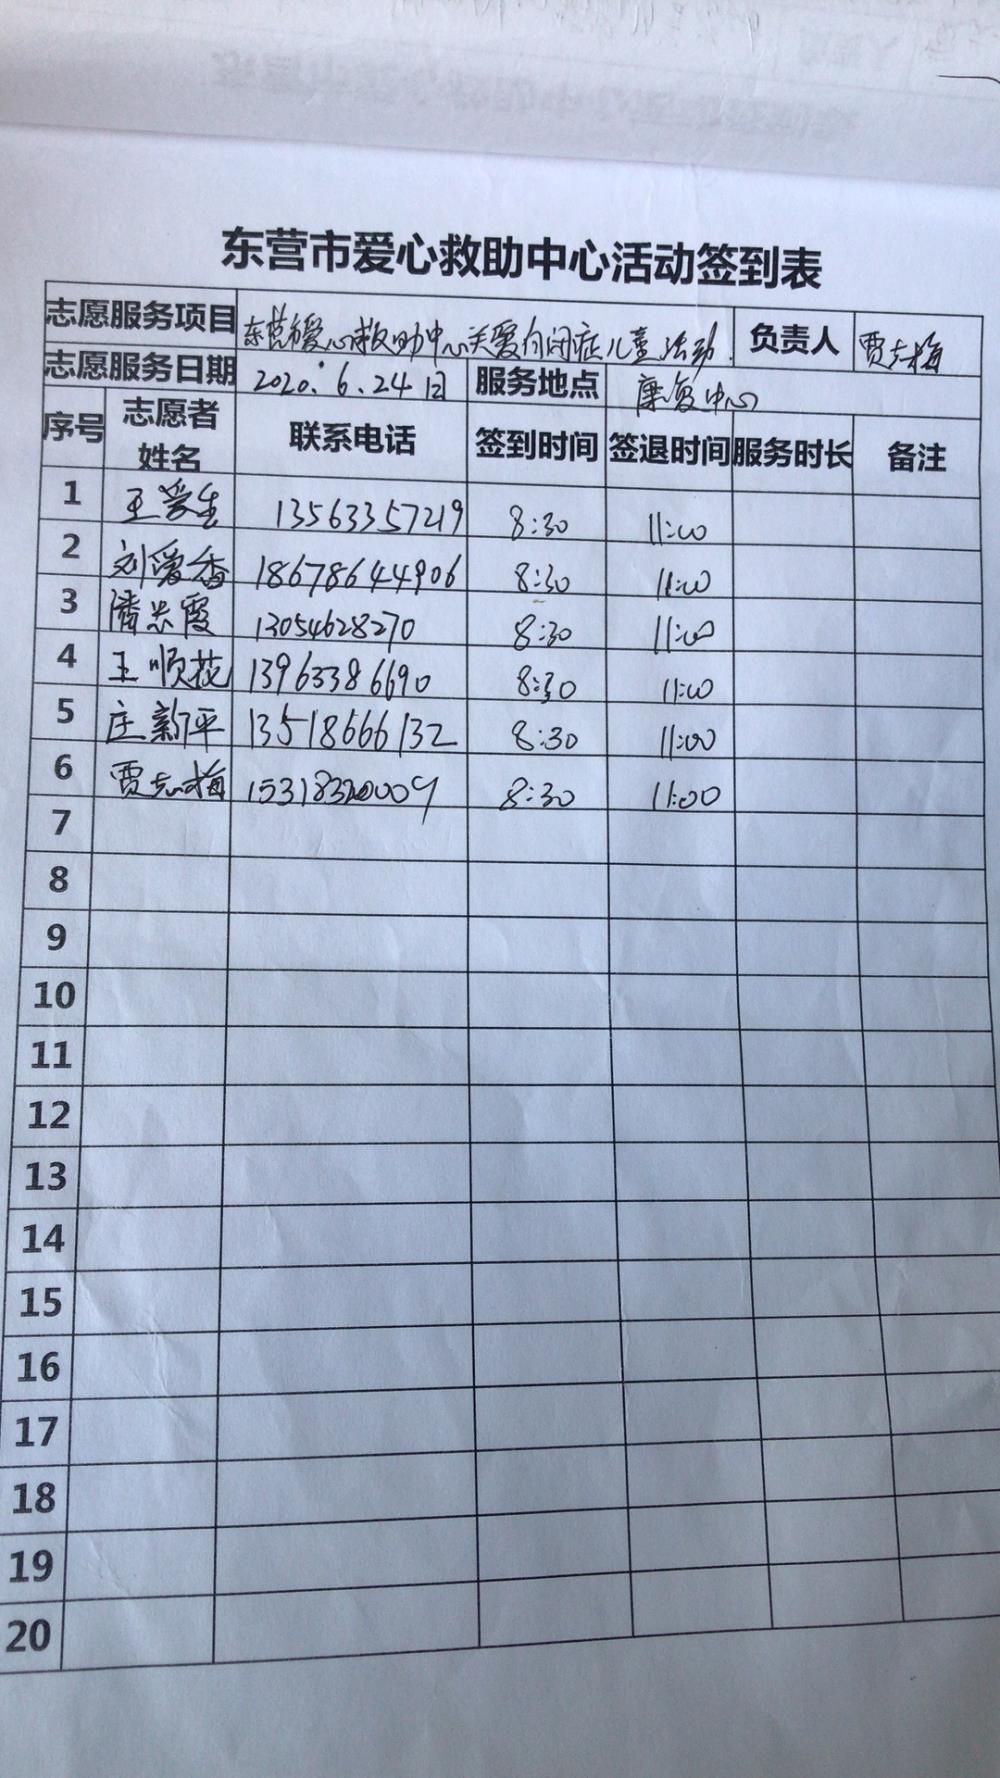 东营市爱心救助中心活动签到表
志愿服务项目 东营市爱心救助中心关爱自闭症儿童活动 负责人 贾志梅
志愿服务日期 2020.6.24日 服务地点 康复中心
序号 志愿者姓名 联系电话 签到时间 签退时间 服务时长 备注
1 王爱生 13563357219 8:30 11:00
2 刘爱香 18678644906 8:30 11:00
3 潘忠霞 13054628270 8:30 11:00
4 王顺花 13963386690 8:30 11:00
5 庄新平 13518666132 8:30 11:00
6 贾志梅 15318320009 8:30 11:00
7
8
9
10
11
12
13
14
15
16
17
18
19
20